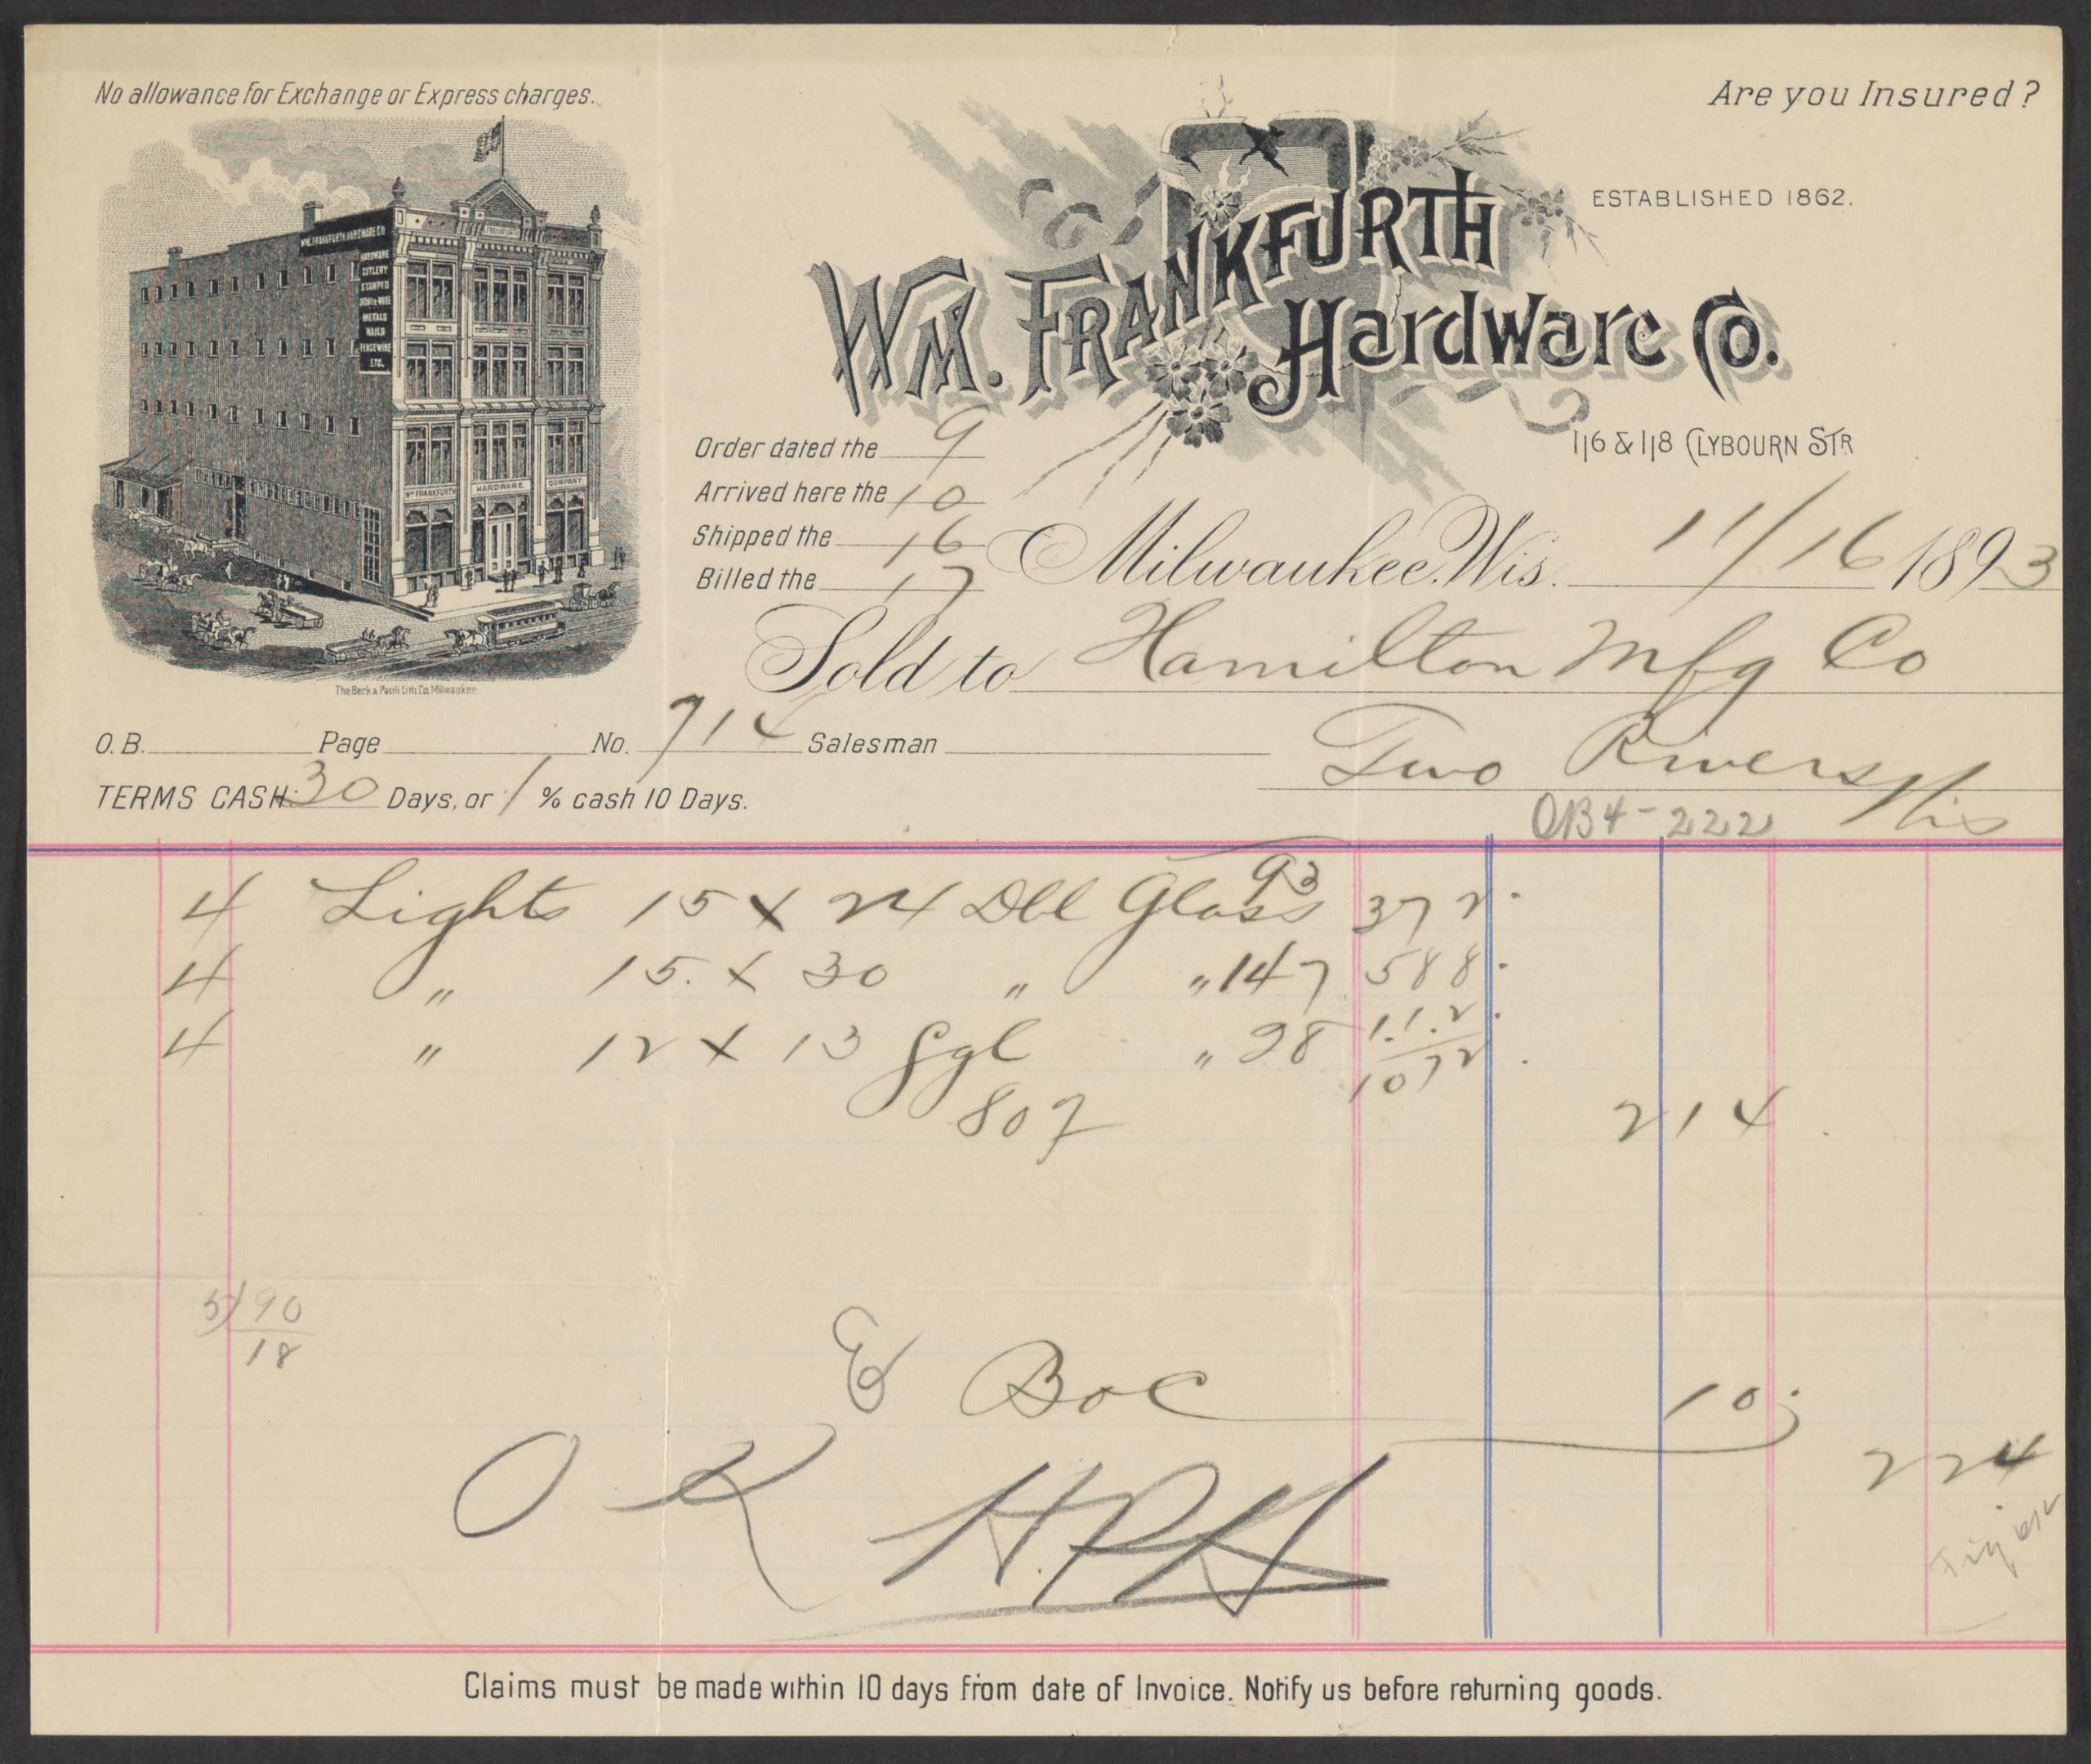 No allowance for Exchange or Express charges.
Are you Insured?
WM. FRANKFURTH HARDWARE CO
HARDWARE
CUTLERY
STAMPED
METALS
NAILS
FENCE WIRE
ETC.
FRANKFURTH
WM FRANKFURTH HARDWARE COMPANY
The Beck & Pauli Lith. Co. Milwaukee
ESTABLISHED 1862.
WM. FRANKFURTH
Hardware Co.
116 & 118 CLYBOURN STR
Order dated the 9
Arrived here the 10
Shipped the 16
Billed the 17
Milwaukee. Wis. 11/16 1893
Sold to Hamilton Mfg Co
Two Rivers Wis
O.B. Page No. 714 Salesman
TERMS CASH 30 Days, or 1 % cash 10 Days.
OB4-222
4 Lights 15 x 24 Dbl Glass 93 372
4 " 15 x 30 " " 147 588
4 " 12 x 13 Sgl " 28 1.1.2
1072
80% 214
5)90
18
& Box 10
224
O K H.P.H
Claims must be made within 10 days from date of Invoice. Notify us before returning goods.